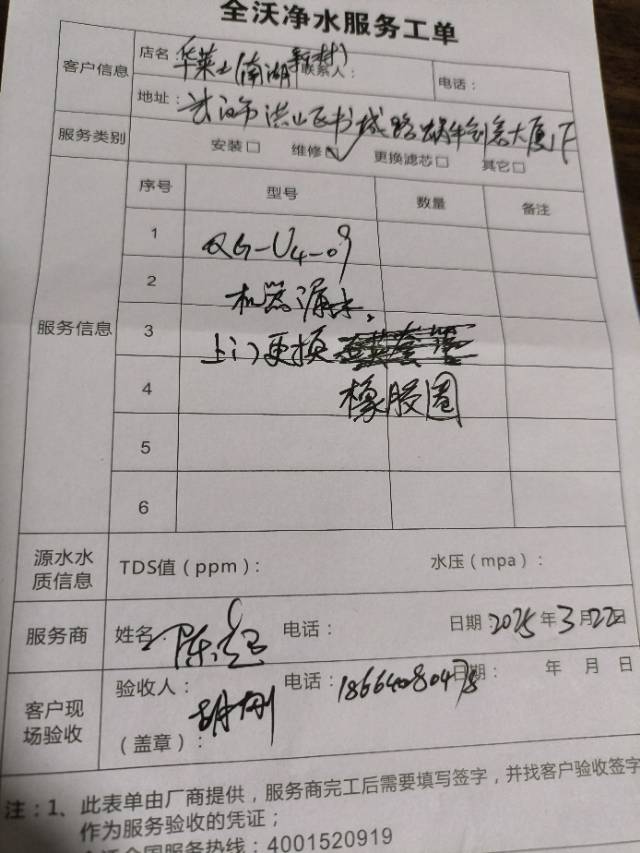 全沃净水服务工单
客户信息 店名 华莱士(南湖新村) 联系人： 电话：
地址：武汉市洪山区书城路蜗牛创客大厦1F
服务类别 安装□ 维修☑ 更换滤芯□ 其它□
服务信息 序号 型号 数量 备注
1 QG-U4-09
2 机器漏水，
3 上门更换
4 橡胶圈
5
6
源水水质信息 TDS值（ppm）： 水压（mpa）：
服务商 姓名 陈 电话： 日期：2025年3月22日
客户现场验收 验收人：胡刚 电话：18664080478 日期： 年 月 日
（盖章）：
注：1、此表单由厂商提供，服务商完工后需要填写签字，并找客户验收签字
作为服务验收的凭证；
全沃全国服务热线：4001520919